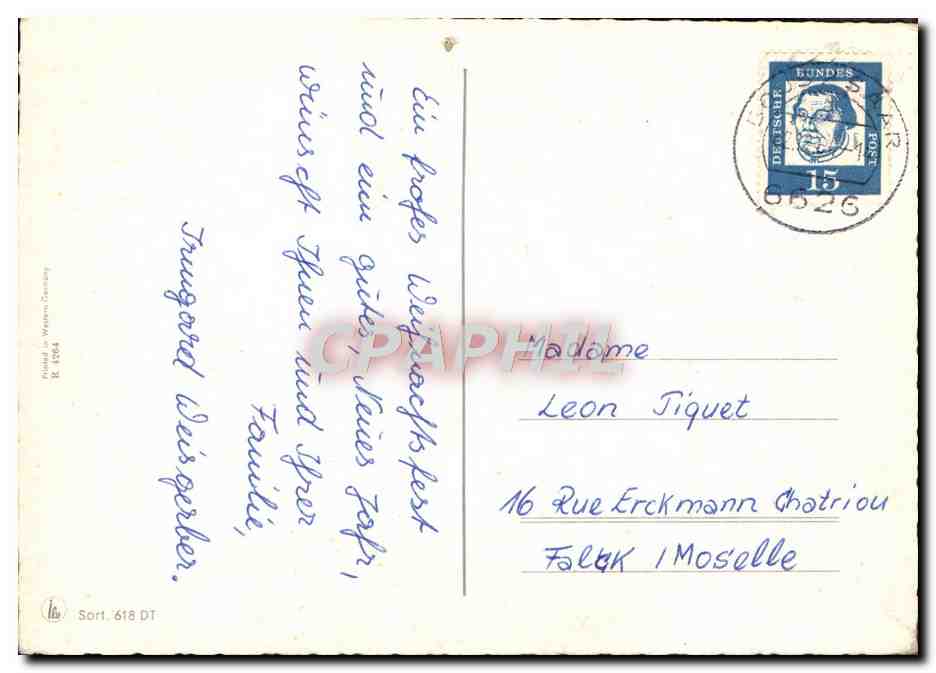 Ein frohes Weihnachtsfest
und ein gutes, Neues Jahr,
wünscht Ihnen und Ihrer
Familie,
Irmgard Weisgerber.
DEUTSCHE
BUNDES
POST
15
SAAR
6626
CPAPHIL
Madame
Leon Tiquet
16 Rue Erckmann Chatriou
Falck / Moselle
Printed in Western Germany
R 4264
Sort. 618 DT